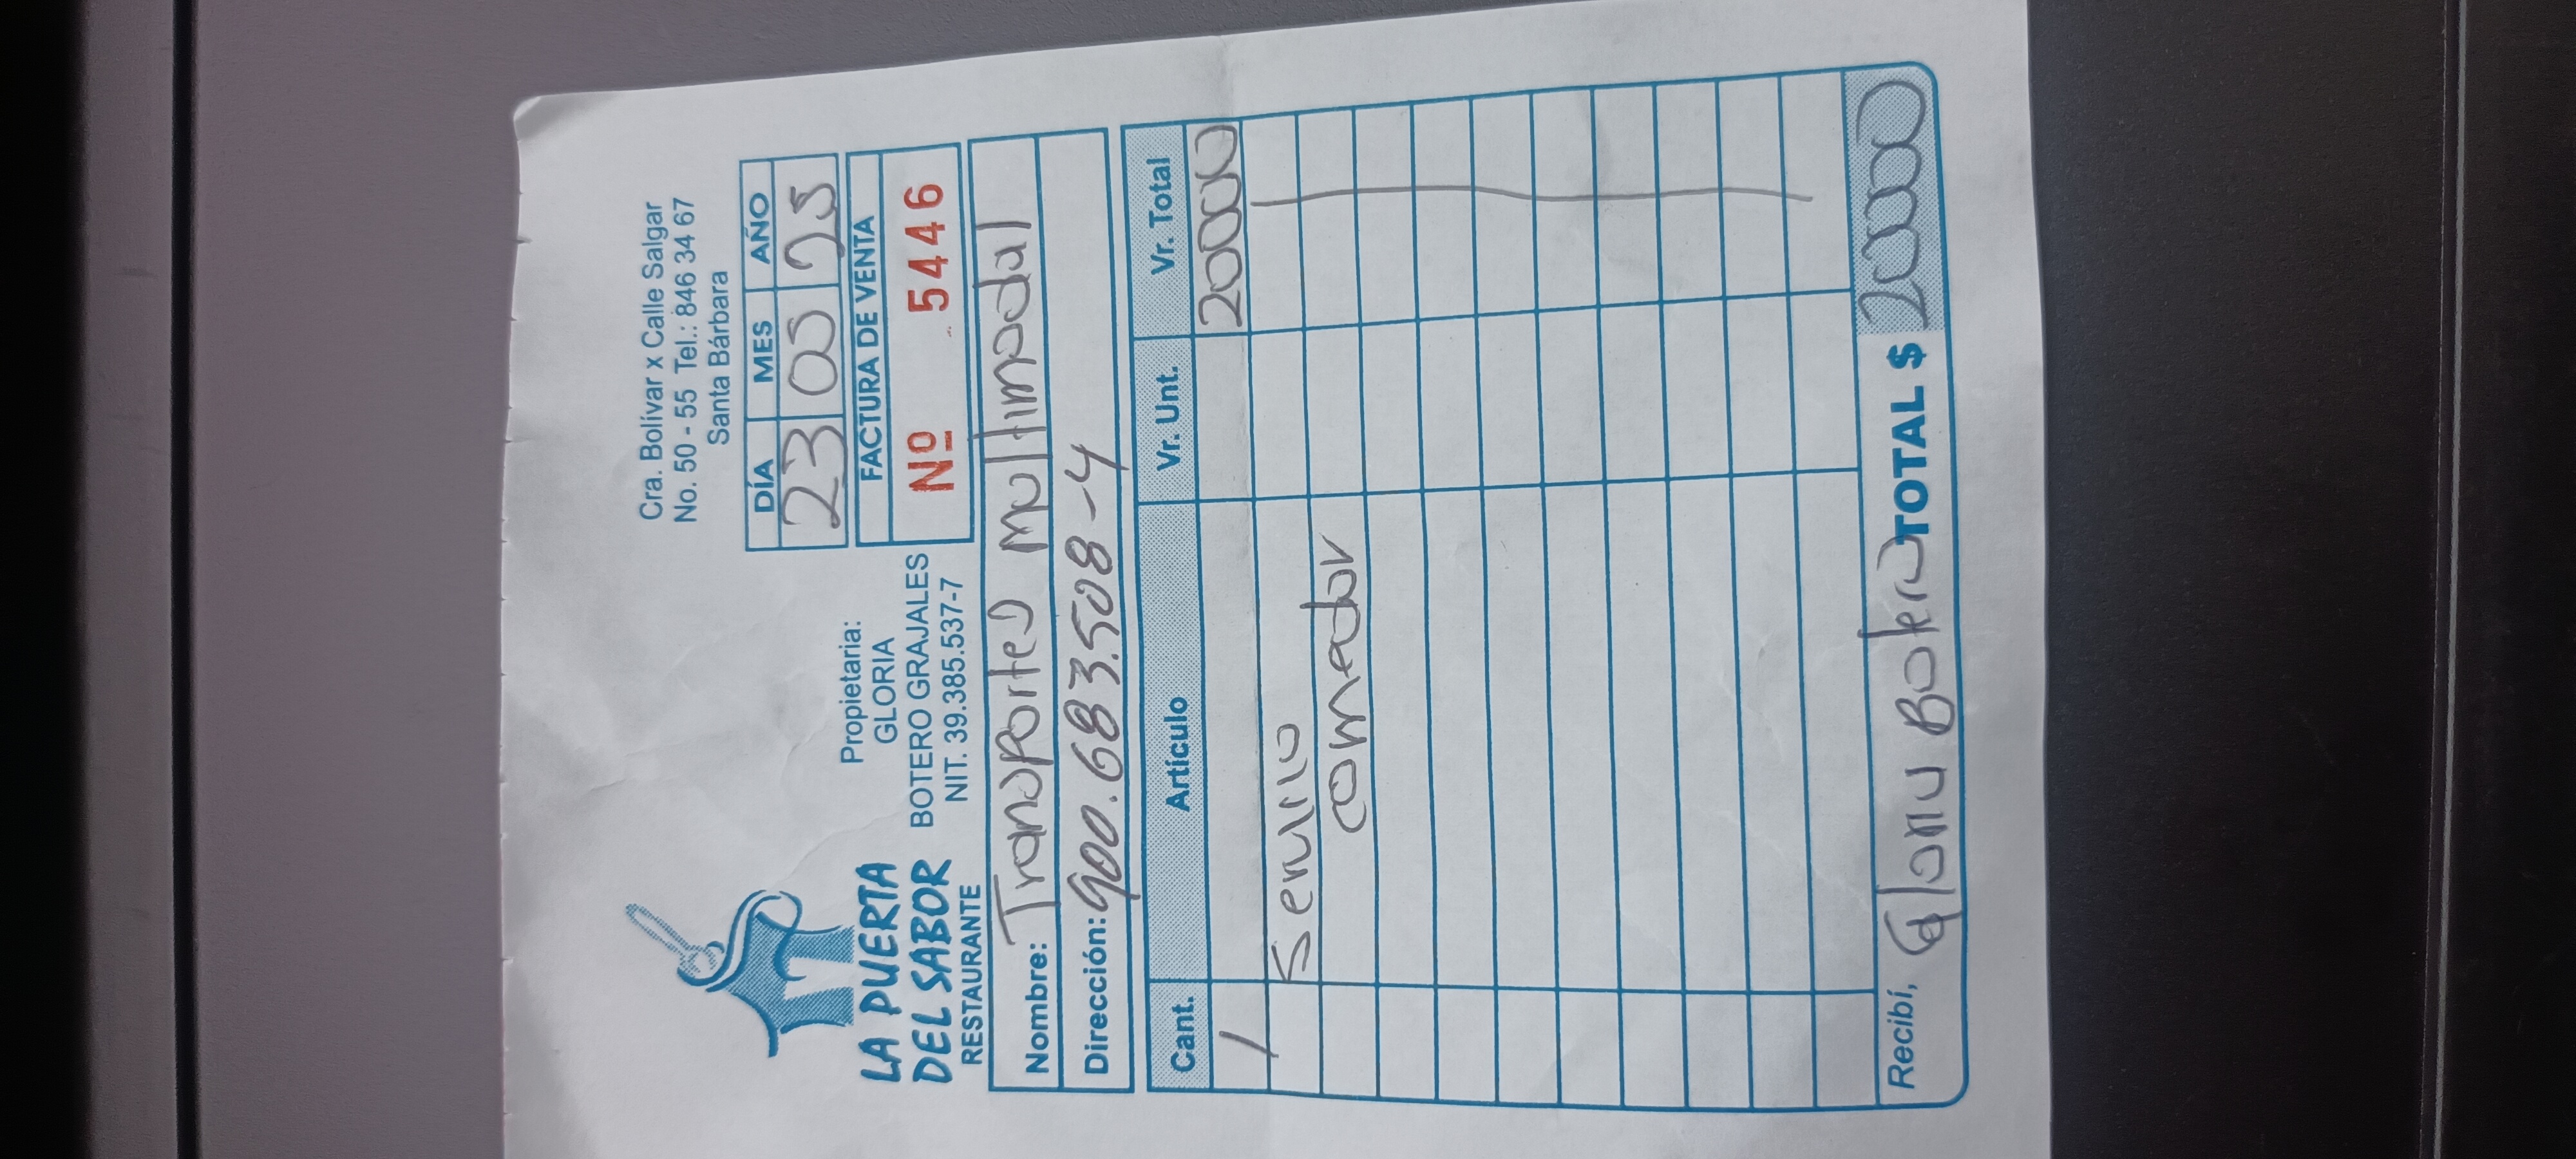 LA PUERTA
DEL SABOR
RESTAURANTE
Propietaria:
GLORIA
BOTERO GRAJALES
NIT. 39.385.537-7
Cra. Bolívar x Calle Salgar
No. 50 - 55 Tel.: 846 34 67
Santa Bárbara
DÍA MES AÑO
23 25
FACTURA DE VENTA
Nº 5446
Nombre: Transportes multimodal
Dirección: 900.683.508-4
Cant. Artículo Vr. Unt. Vr. Total
1 20000
Servicio
comedor
Recibí, Gloria Botero TOTAL $ 20000